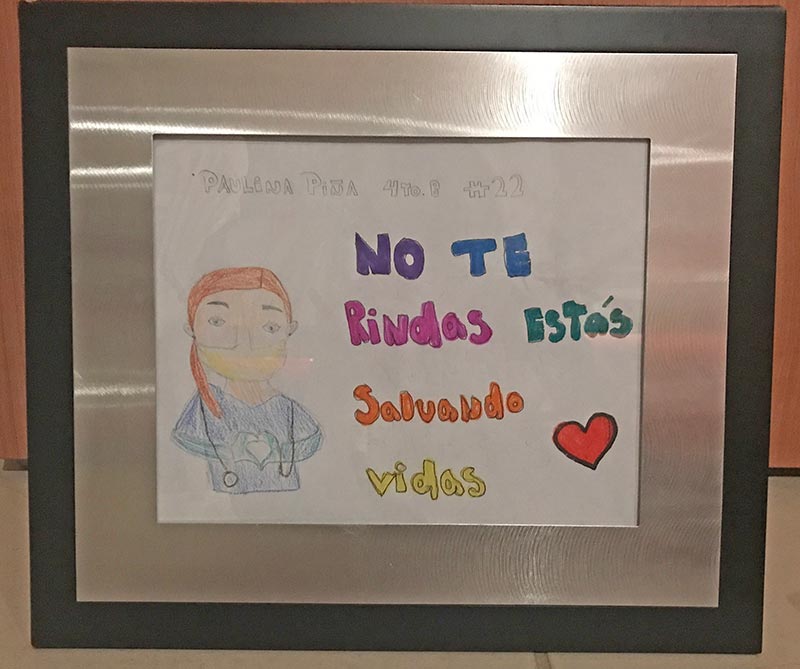 PAULINA PIÑA 4TO. B #22
NO TE
Rindas EStáS
Salvando
vidas